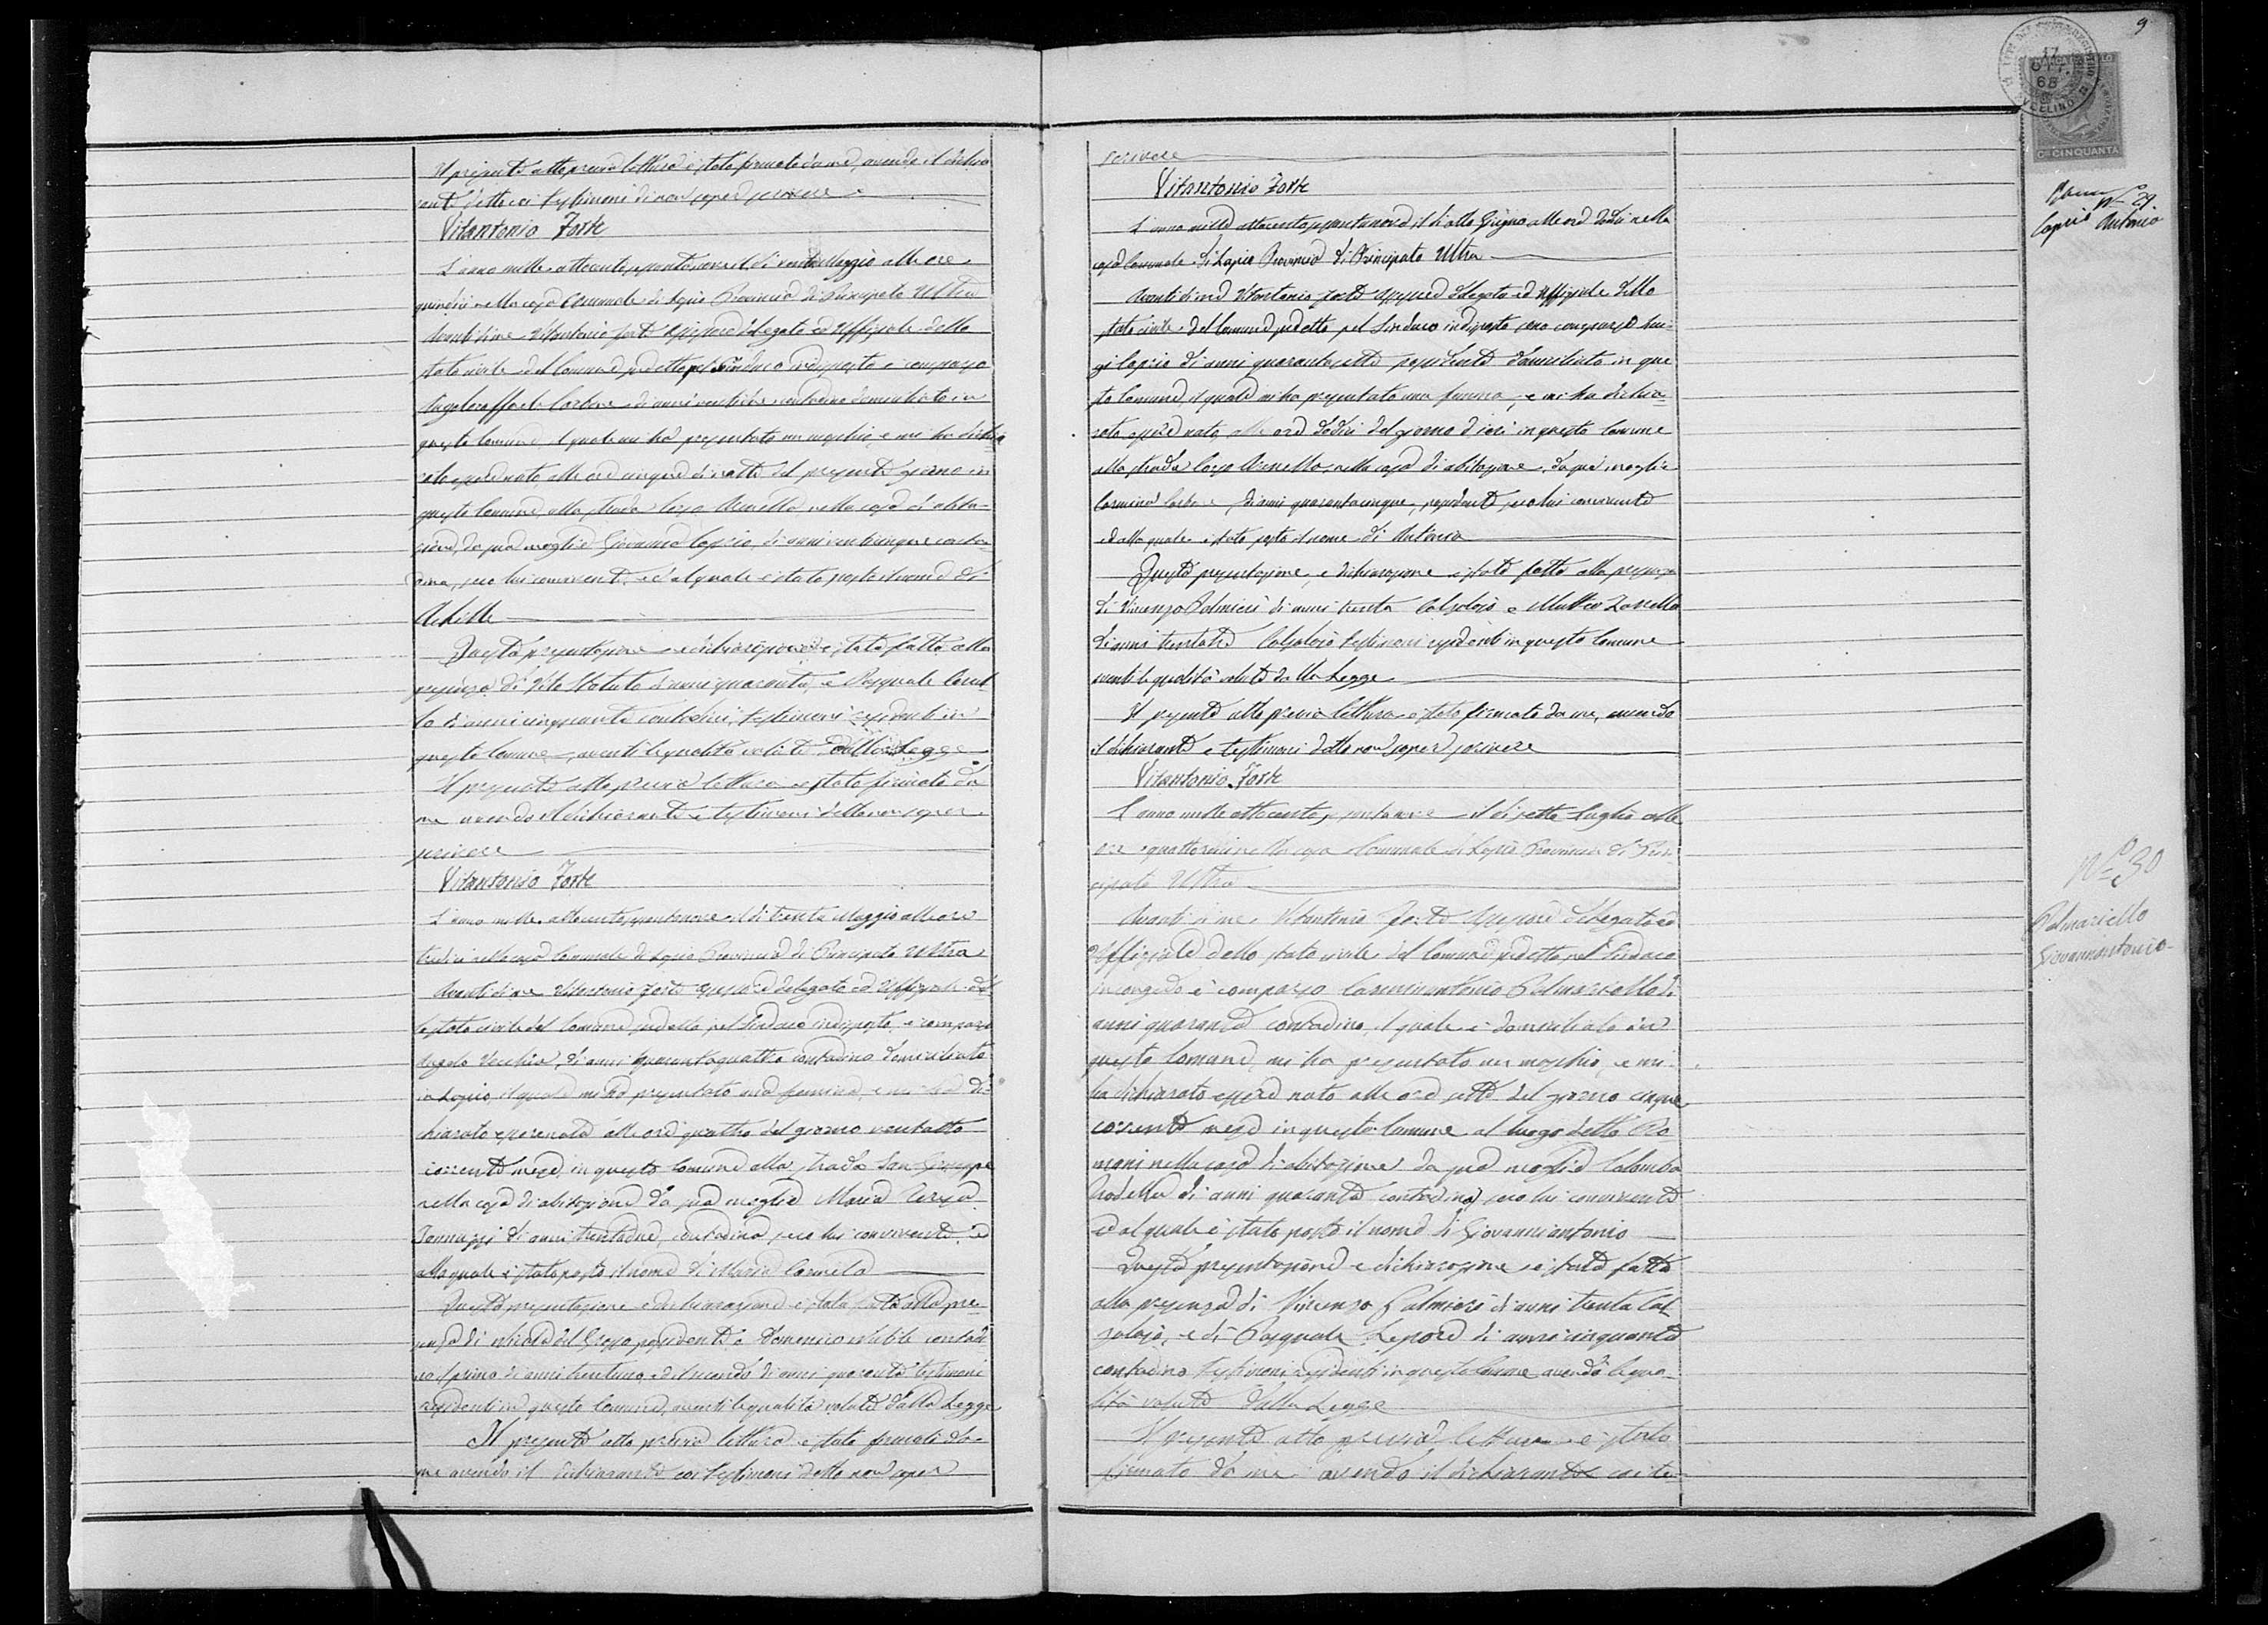 Il presente atto previa lettura è stato firmato da me, avendo il dichia
rante detto ed i testimoni di non saper scrivere
Vitantonio Forte
L'anno mille ottocento sessantanove il di venti Maggio alle ore
quindici nella casa Comunale di Lapio Provincia di Principato Ultra
Avanti di me Vitantonio Forte Assessore delegato ed Uffiziale dello
stato civile del Comune sudetto pel Sindaco indisposto è comparso
Angeloraffaele Carbone di anni ventotto contadino domiciliato in
questo Comune il quale mi ha presentato un maschio e mi ha dichia
rato essere nato alle ore cinque di notte del presente giorno in
questo Comune alla strada Aniello nella casa di abita-
zione, da sua moglie Giovanna Caprio, di anni venticinque conta
dina, seco lui convivente, ed al quale è stato posto il nome di
Achille
Questa presentazione e dichiarazione è stata fatta alla
presenza di Vito Statuto d'anni quaranta, e Pasquale
di anni cinquanta contadini, testimoni residenti in
questo Comune, aventi le qualità volute dalla Legge
Il presente atto previa lettura è stato firmato da
me avendo il dichiarante e testimoni detto non saper
scrivere
Vitantonio Forte
L'anno mille ottocento sessantanove il di trenta Maggio alle ore
tredici nella casa Comunale di Lapio Provincia di Principato Ultra
Avanti di me Vitantonio Forte Assessore delegato ed Uffiziale del
lo stato civile del Comune sudetto pel Sindaco indisposto, è comparso
Angelo Vecchia, di anni quarantaquattro contadino domiciliato
in Lapio, il quale mi ha presentato una femina, e mi ha di-
chiarato essere nata alle ore quattro del giorno ventotto
corrente mese, in questo Comune alla strada San Giuseppe
nella casa di abitazione da sua moglie Maria Teresa
Iannuzzi di anni trentadue, contadina, seco lui convivente, ed
alla quale è stato posto il nome di Maria Carmela
Questa presentazione e dichiarazione è stata fatta alla pre
senza di del Grosso possidente e Domenico contadi
no il primo di anni trentuno, ed il secondo di anni quaranta testimoni
residenti in questo Comune, aventi le qualità volute dalla Legge
Il presente atto previa lettura è stato firmato da
me avendo il dichiarante coi testimoni detto non saper
scrivere
Vitantonio Forte
L'anno mille ottocento sessantanove il di otto Giugno alle ore dodici nella
casa Comunale di Lapio Provincia di Principato Ultra
Avanti di me Vitantonio Forte Assessore delegato ed Uffiziale dello
stato civile del Comune sudetto pel Sindaco indisposto sono comparso Lui-
gi Caprio di anni quarantasette possidente domiciliato in que
sto Comune, il quale mi ha presentato una femina, e mi ha dichia-
rato essere nata alle ore dodici del giorno d'ieri in questo Comune
alla strada Aniello, nella casa di abitazione, da sua moglie
Carmina Carbone, di anni quarantacinque, possidente seco lui convivente
ed alla quale è stato posto il nome di Antonia
Questa presentazione, e dichiarazione è stata fatta alla presenza
di Vincenzo Palmieri di anni trenta Calzolaio e Matteo Zarrella
di anni trentatre Calzolaio testimoni residenti in questo Comune
aventi le qualità volute dalla Legge
Il presente atto previa lettura è stato firmato da me, avendo
il dichiarante e testimoni detto non saper scrivere
Vitantonio Forte
L'anno mille ottocento sessantanove il di sette Luglio alle
ore quattordici nella casa Comunale di Lapio Provincia di Prin
cipato Ultra
Avanti di me Vitantonio Forte Assessore delegato ed
Uffiziale dello stato civile del Comune sudetto pel Sindaco
in congedo è comparso Carminantonio Palmariello di
anni quaranta contadino, il quale è domiciliato in
questo Comune, mi ha presentato un maschio, e mi
ha dichiarato essere nato alle ore sette del giorno cinque
corrente mese in questo Comune al luogo detto Ro
mani nella casa di abitazione da sua moglie Colomba
di anni quaranta contadina, seco lui convivente
ed al quale è stato posto il nome di Giovanniantonio
Questa presentazione e dichiarazione è stata fatta
alla presenza di Vincenzo Palmieri di anni trenta Cal
zolaio, e di Pasquale Lepore di anni cinquanta
contadino testimoni residenti in questo Comune avendo le qua-
lità volute dalla Legge
Il presente atto previa lettura è stato
firmato da me avendo il dichiarante coi te
9
17
OTT.
68
AVELLINO
Cmi CINQUANTA
No 29.
Caprio Antonia
No 30
Palmariello
Giovannantonio